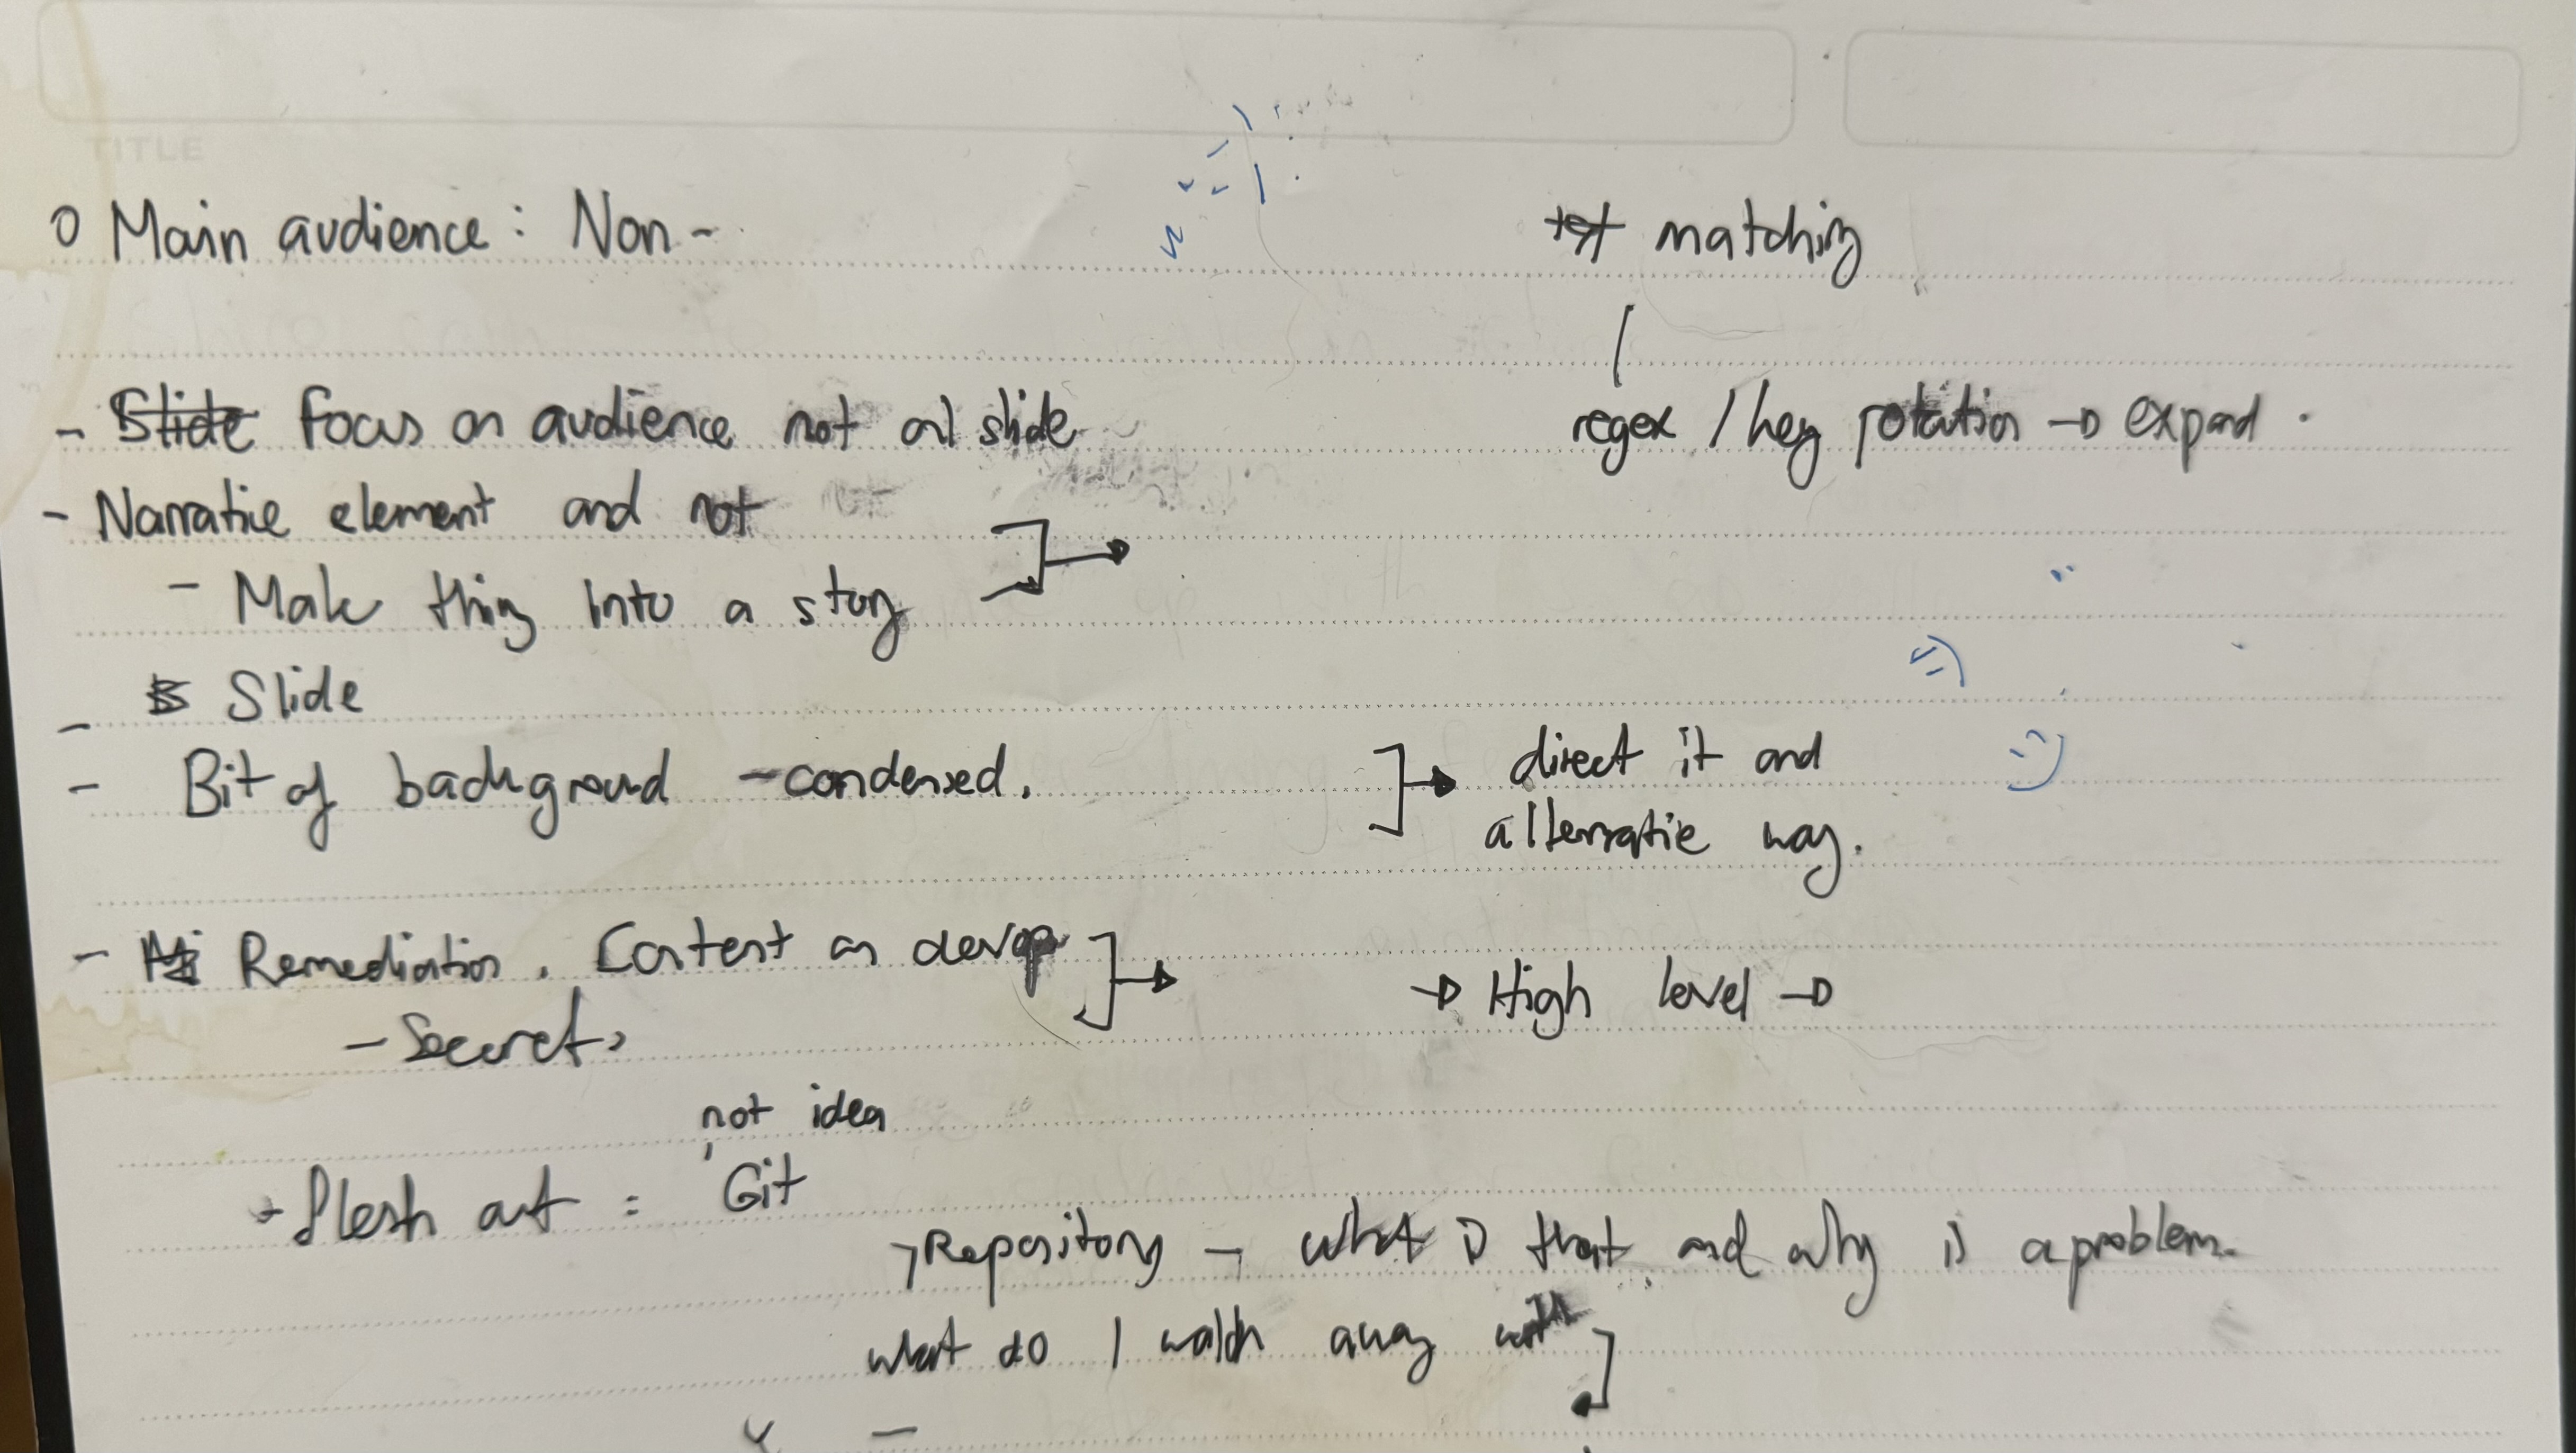 TITLE
o Main audience : Non -
text matching
- Slide Focus on audience not on slide
regex / key rotation → expand .
- Narrative element and not
- Make thing into a story
- Slide
- Bit of background - condensed.
→ direct it and
alternative way.
- Remediation . Content on devop
→ High level →
- Secrets
not idea
- flesh out : Git
→ Repository → what is that and why is a problem.
what do I walk away with